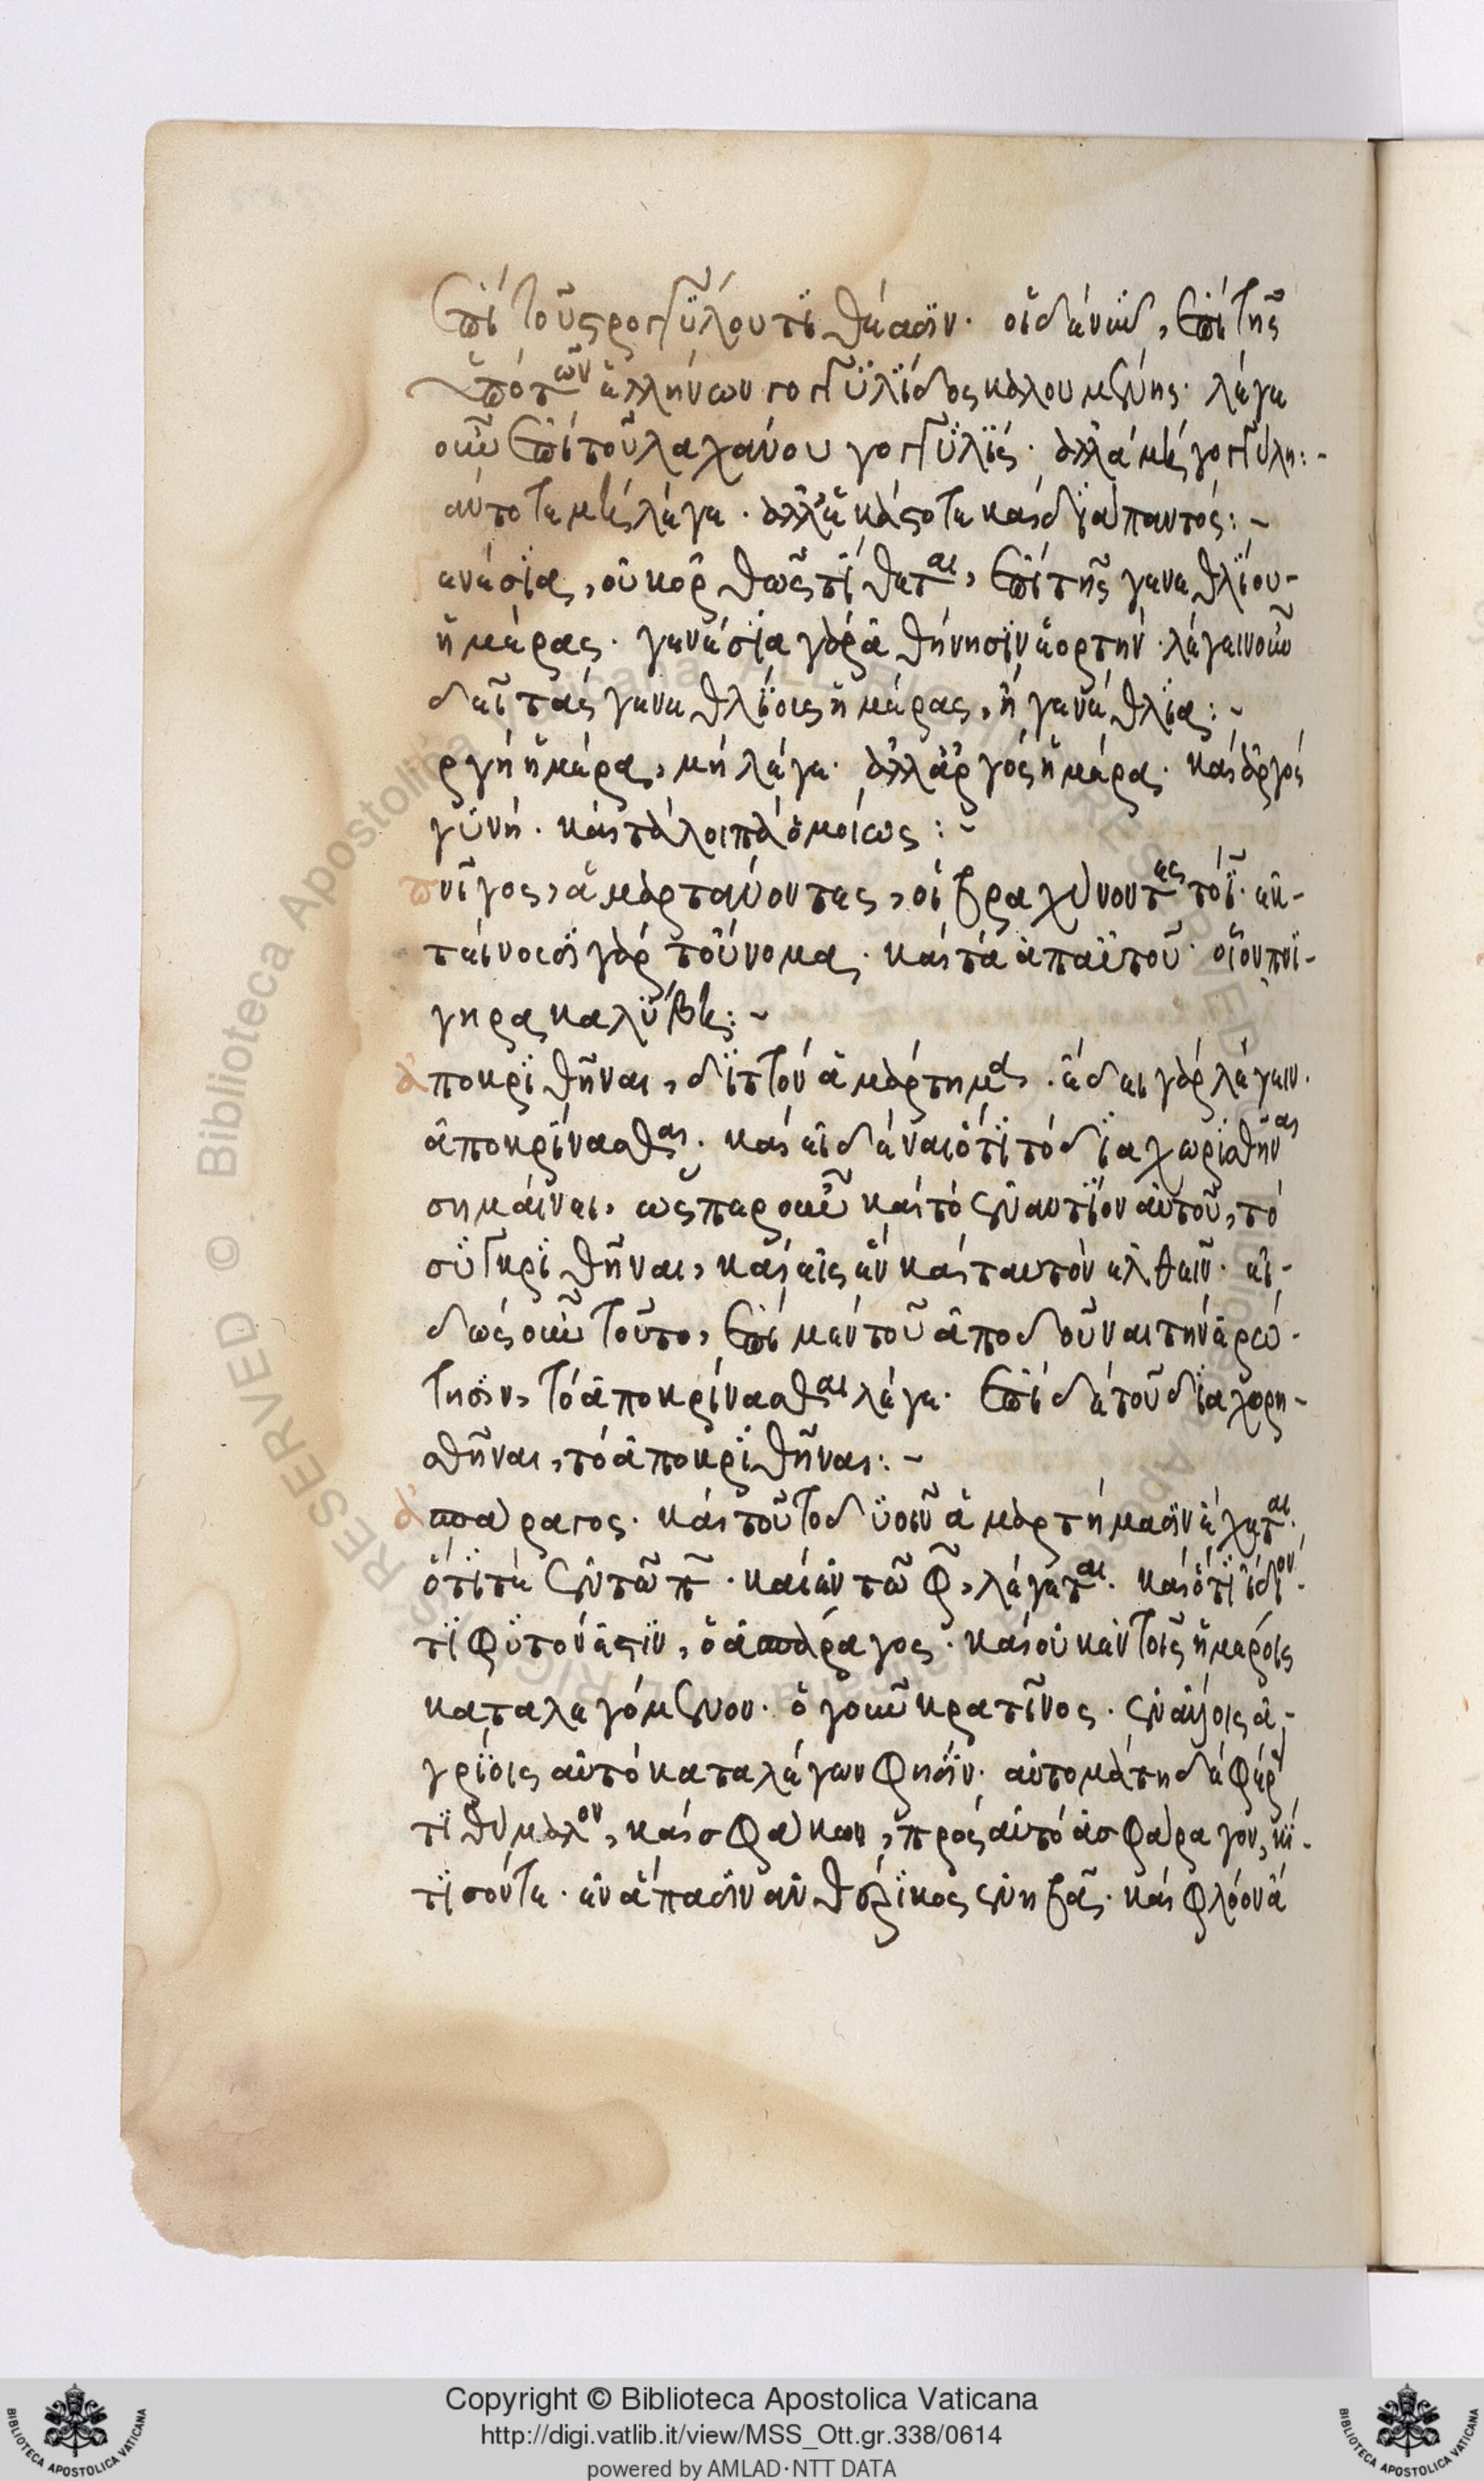 ἐπὶ τοῦ στρογγύλου τϊθέασϊν. οἱ δὲ νῦν, ἐπὶ τῆς
ὑπὸ τῶν ἑλλήνων γογγϋλΐδος καλουμένης. λέγε
οὖν ἐπὶ τοῦ λαχάνου γογγϋλΐς. ἀλλὰ μὴ γογγύλη:-
αὐτότε μὴ λέγε. ἀλλ' ἑκάστοτε καὶ δϊαπαντός:-
ενέσϊα, οὐκ ὀρθῶς τΐθεται, ἐπὶ τῆς γενεθλΐου
ἡμέρας. γενέσϊα γὰρ ἀθήνησϊν ἑορτήν. λέγειν οὖν
δεῖ τὰς γενεθλΐους ἡμέρας, ἢ γενέθλϊα:-
ργὴ ἡμέρα, μὴ λέγε. ἀλλ' ἀργὸς ἡμέρα. καὶ ἀργὸς
γϋνή. καὶ τὰ λοιπὰ ὁμοίως:-
πνῖγος, ἁμαρτάνοντες, οἱ βραχύνοντες τὸ ϊ. ἐκ-
τείνουσϊ γὰρ τοὔνομα. καὶ τὰ ἀπ' αὐτοῦ. οἷον πνι-
γηρα καλΰβη:-
ἀποκρϊθῆναι, δϊττὸν ἁμάρτημα. ἔδει γὰρ λέγειν.
ἀποκρΐνασθαι. καὶ εἰδέναι ὅτϊ τὸ δϊαχωρϊσθῆναι
σημαίνει, ὥσπερ οὖν καὶ τὸ ἐναντΐον αὐτοῦ, τὸ
σϋγκρϊθῆναι, καὶ εἰς ἓν καὶ ταυτὸν ἐλθεῖν. εἰ-
δὼς οὖν τοῦτο, ἐπὶ μὲν τοῦ ἀποδοῦναι τὴν ἐρώ-
τησϊν, τὸ ἀποκρΐνασθαι λέγε. ἐπὶ δὲ τοῦ δϊαχωρη-
σθῆναι, τὸ ἀποκρϊθῆναι:-
ἀσπάραγος. καὶ τοῦτο δϋοῖν ἁμαρτήμασϊν ἔχεται.
ὅτϊ τὲ ἐν τῶ π. καὶ ἐν τῶ φ, λέγεται. καὶ ὅτϊ ἴδϊον
τϊ φϋτόν ἐστϊν, ὁ ἀσπάραγος. καὶ οὐκ ἐν τοῖς ἡμέροις
καταλεγόμενον. ὁ γοῦν κρατῖνος. ἐν αὐλοῖς ἀ-
γρΐοις αὐτὸ καταλέγων φησϊν. αὐτομάτη δὲ φέρει
τϊθύμαλον, καὶ σφάκων, πρὸς αὐτὸ ἀσφάραγον, κύ-
τϊσόν τε. ἐν ἅπασϊν ἀνθέρϊκος ἐνηβᾷ. καὶ φλόον ἄ